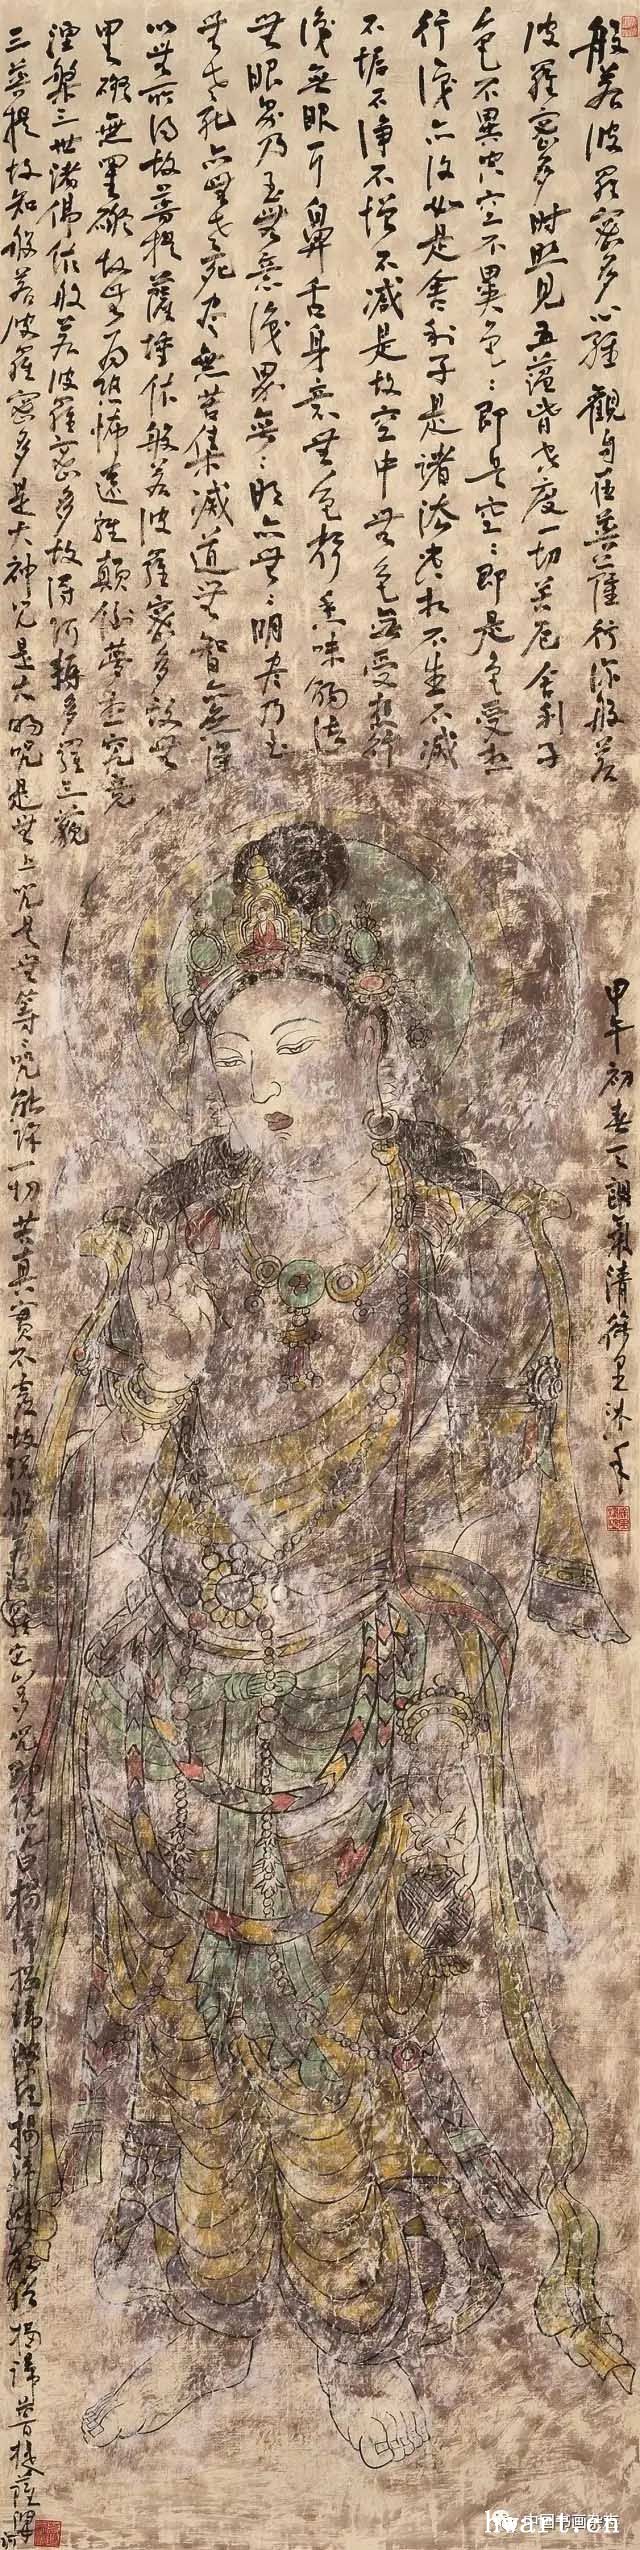 般若波羅密多心經觀自在菩薩行深般若
波羅密多时照見五蕴皆空度一切苦厄舍利子
色不異空空不異色:即是空:即是色受想
行識亦復如是舍利子是諸法空相不生不滅
不垢不淨不增不减是故空中無色無受想行
識無眼耳鼻舌身意無色聲香味觸法
無眼界乃至無意識界無:明亦無:明盡乃至
無老死亦無老死盡無苦集滅道無智亦無得
以無所得故菩提薩埵依般若波羅密多故無
罣礙無罣礙故無有恐怖遠離顛倒夢想究竟
涅槃三世諸佛依般若波羅密多故得阿耨多羅三藐
三菩提故知般若波羅密多是大神咒是大明咒是無上咒是無等:咒能除一切苦真實不虚故說般若波羅密多咒即說咒曰揭諦揭諦波羅揭諦波羅僧揭諦菩提薩婆訶
甲午初春天朗氣清徐里沐手
中国书画杂志
hwart.cn